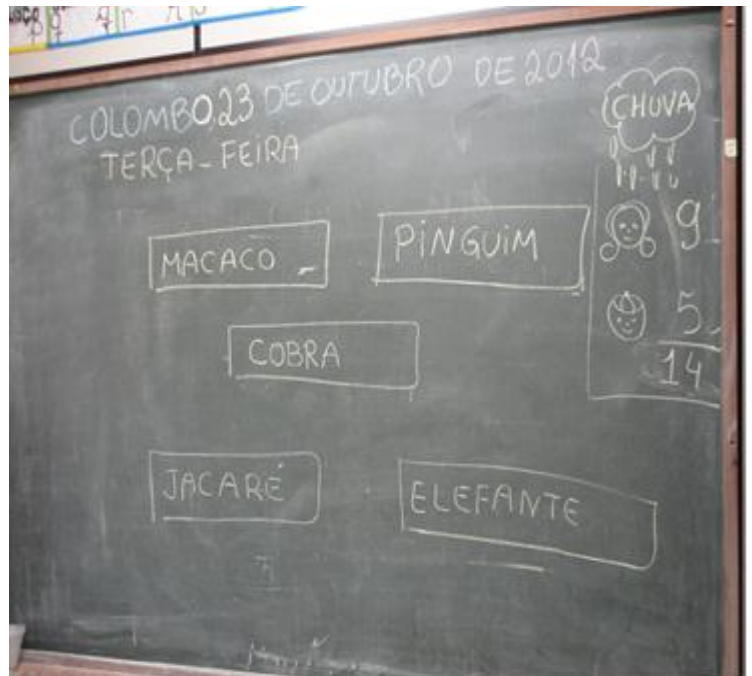 COLOMBO, 23 DE OUTUBRO DE 2012
TERÇA-FEIRA
CHUVA
MACACO
PINGUIM
9
COBRA
5
14
JACARÉ
ELEFANTE